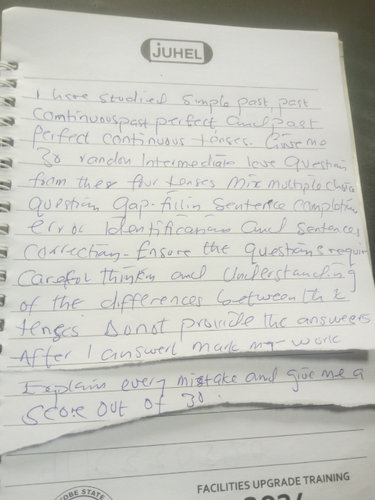 JUHEL
I have studied simple past, past
continuous past perfect and past
perfect continuous tenses. Give me
30 random Intermediate leve Question
from these four tenses Mix multiple choice
question gap-fillin Sentence completion
error Identification and sentence
correction. Ensure the questions requir
Careful thinkin and Understanding
of the differences between the
tenses Do not provide the answers
After I answerd mark my work
Explain every mistake and give me a
Score out of 30.
FACILITIES UPGRADE TRAINING
OBE STATE